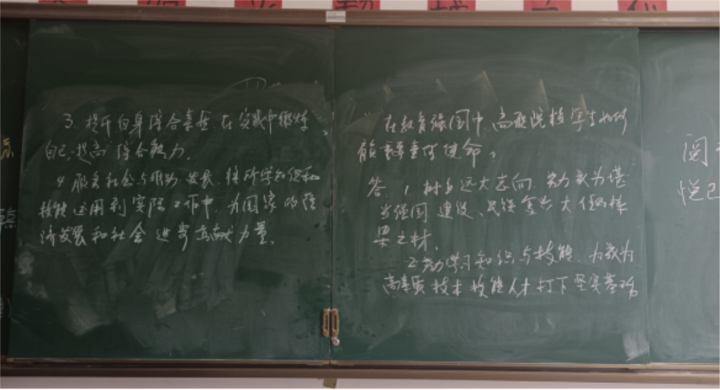 3. 提升自身综合素质,在实践中锻炼
自己,提高综合能力。
4 服务社会与推动发展,将所学知识和
技能运用到实际工作中,为国家的经
济发展和社会进步贡献力量。
在教育强国中,高职院校学生如何
能担重何使命。
答:1 树立远大志向,努力成为堪
当强国建设、民族复兴大任的栋
梁之材。
2 努力学习知识与技能,为成为
高素质技术技能人才打下坚实基础
阅
悦己